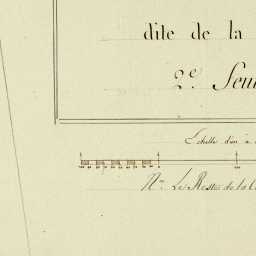 dite de la
2.e Feui
Echelle d'un a
N.ta Le Reste de la C